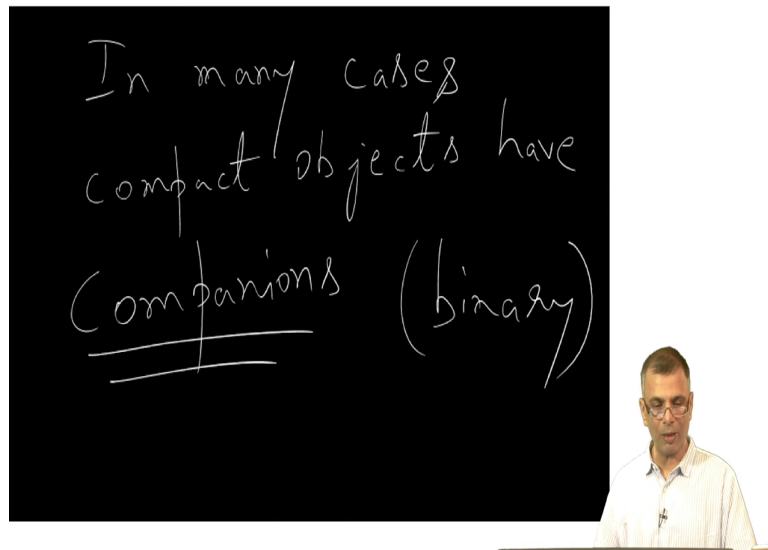 In many cases
compact objects have
companions (binary)